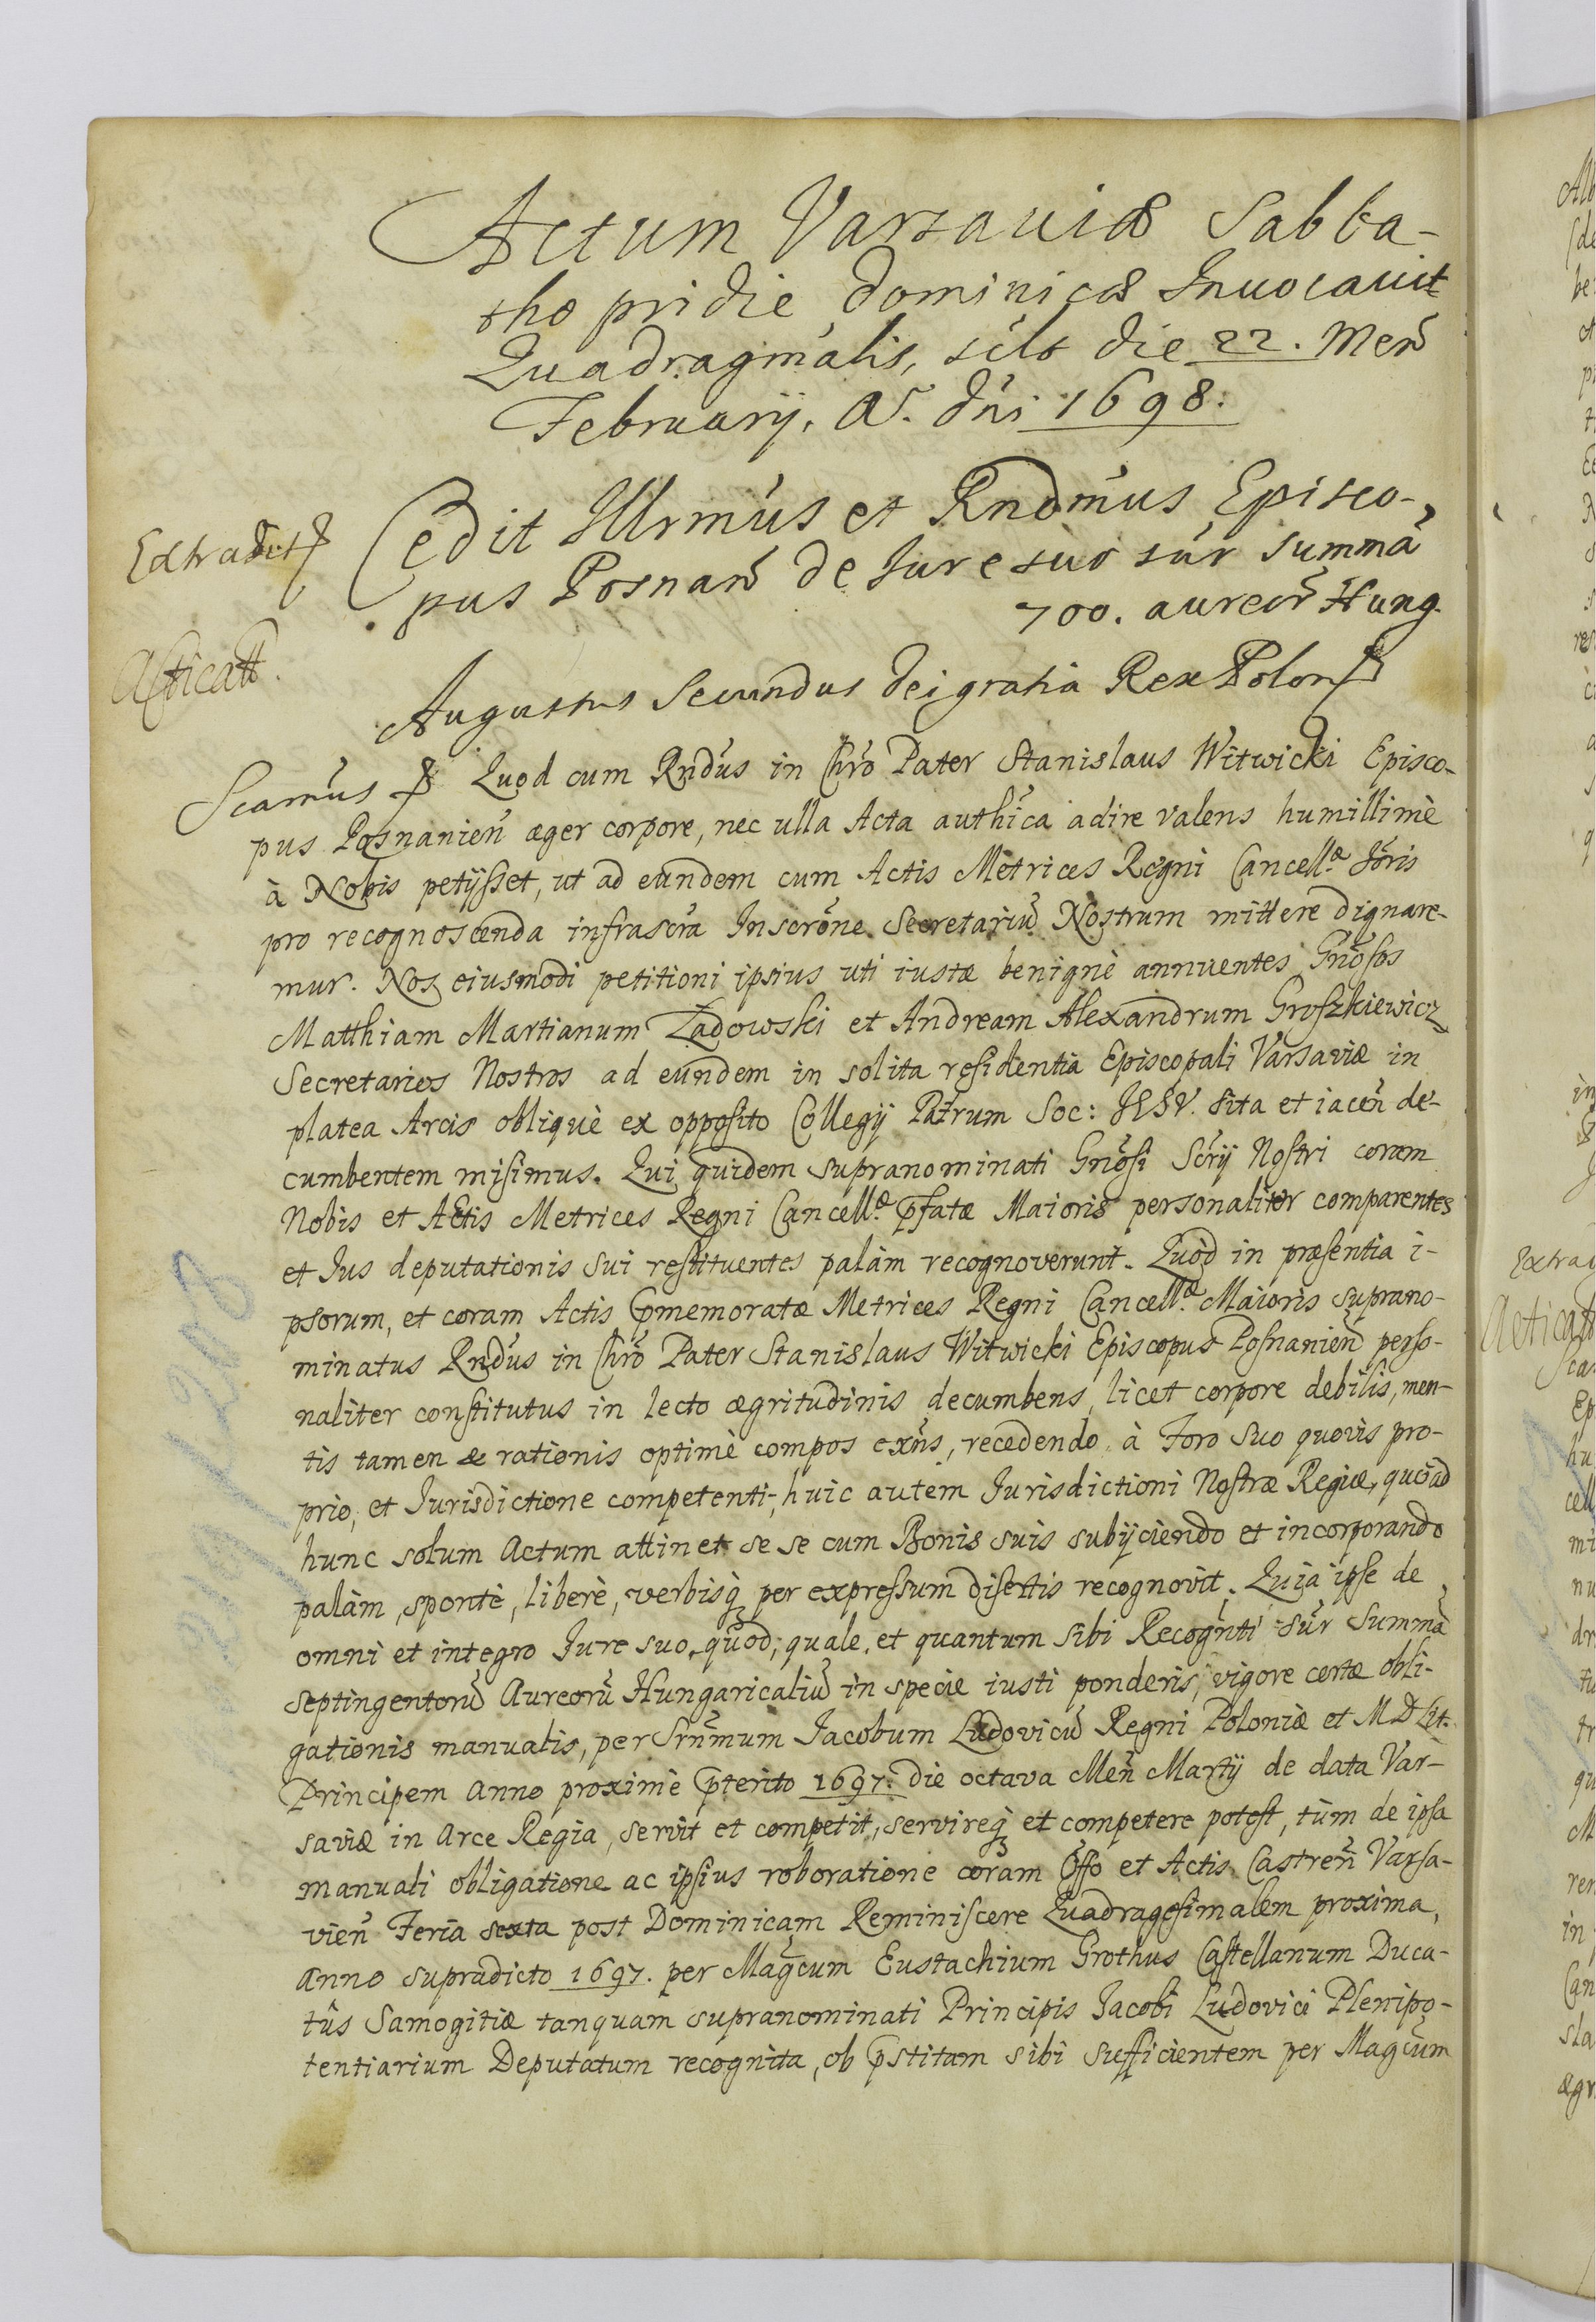 Actum Varsaviæ Sabba-
tho pridie Dominicæ Invocavit
Quadragmãlis, sclt die 22. Men̄
Februarij. A. dn̄i 1698.
Extradit
Cedit Illrm̄us et Rndm̄us Episco-
pus Posnan̄ de Iure suo sūr summā
700. aureor̄ Hung.
Acticatt.
Augustus Secundus Dei gratia Rex Polon
Scam̄us Quod cum Rndūs in Chrō Pater Stanislaus Witwicki Episco-
pus Posnanien̄ æger corpore, nec ulla Acta authc̄a adire valens humillimè
à Nobis petijsset, ut ad eundem cum Actis Metrices Regni Cancellæ
pro recognoscenda infrascrā Inscrōne Secretariū Nostrum mittere dignare-
mur. Nos eiusmodi petitioni ipsius uti iustæ benignè annuentes Gnōsos
Matthiam Martianum Ładowski et Andream Alexandrum Groszkiewicz
Secretarios Nostros ad eundem in solita residentia Episcopali Varsaviæ in
platea Arcis obliquè ex opposito Collegij Patrum Soc: IESV. sita et iacen̄ de-
cumbentem misimus. Qui quidem supranominati Gnōsi Scrij Nostri coram
Nobis et Actis Metrices Regni Cancellæ p̄fatæ Maioris personaliter comparentes
et Ius deputationis sui restituentes palàm recognoverunt. Quòd in præsentia i-
psorum, et coram Actis p̄memoratæ Metrices Regni Cancellæ Maioris suprano-
minatus Rndūs in Chrō Pater Stanislaus Witwicki Episcopus Posnanien̄ perso-
naliter constitutus in lecto ægritudinis decumbens, licet corpore debilis, men-
tis tamen & rationis optimè compos exn̄s, recedendo à Foro suo quovis pro-
prio, et Iurisdictione competenti, huic autem Iurisdictioni Nostræ Regiæ, quoad
hunc solum Actum attinet se se cum Bonis suis subijciendo et incorporando
palàm, spontè, liberè, verbisq̨ per expressum disertis recognovit. Quia ipse de
omni et integro Iure suo, quod, quale, et quantum sibi Recogn̄ti sūr summā
septingentorū Aureorū Hungaricaliū in specie iusti ponderis, vigore certæ obli-
gationis manualis, per Srn̄mum Iacobum Ludovicū Regni Poloniæ et M D Lit.
Principem Anno proximè p̄terito 1697. die octava Men̄ Martij de data Var-
saviæ in Arce Regia, servit et competit, servireq̨ et competere potest, tùm de ipsa
manuali obligatione ac ipsius roboratione coram Offo et Actis Castren̄ Varsa-
vien̄ Feria sexta post Dominicam Reminiscere Quadragesimalem proxima,
Anno supradicto 1697. per Magc̄um Eustachium Grothus Castellanum Duca-
tûs Samogitiæ tanquam supranominati Principis Iacobi Ludovici Plenipo-
tentiarium Deputatum recognita, ob p̄stitam sibi sufficientem per Magc̄um